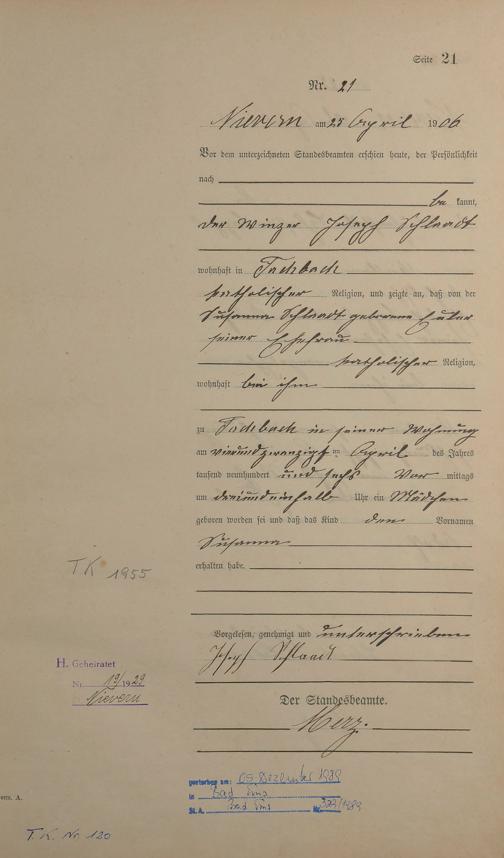 Seite 21
Nr. 21
Nievern am 25 April 1906
Vor dem unterzeichneten Standesbeamten erschien heute, der Persönlichkeit
nach
be kannt,
der Winzer Joseph Schlaadt
wohnhaft in Fachbach
katholischer Religion, und zeigte an, daß von der
Susanna Schlaadt geborene
seiner Ehefrau
katholischer Religion,
wohnhaft bei ihm
zu Fachbach in seiner Wohnung
am vierundzwanzigsten April des Jahres
tausend neunhundert und sechs Vor mittags
um dreiundeinhalb Uhr ein Mädchen
geboren worden sei und daß das Kind den Vornamen
Susanna
erhalten habe.
T K 1955
Vorgelesen, genehmigt und unterschrieben
Joseph Schlaadt
H. Geheiratet
Nr. 19/1929
Nievern
Der Standesbeamte.
Merz.
gestorben am: 09. Dezember 1989
in Bad Ems
St. A. Bad Ems Nr. 323/1989
T. K. Nr. 120